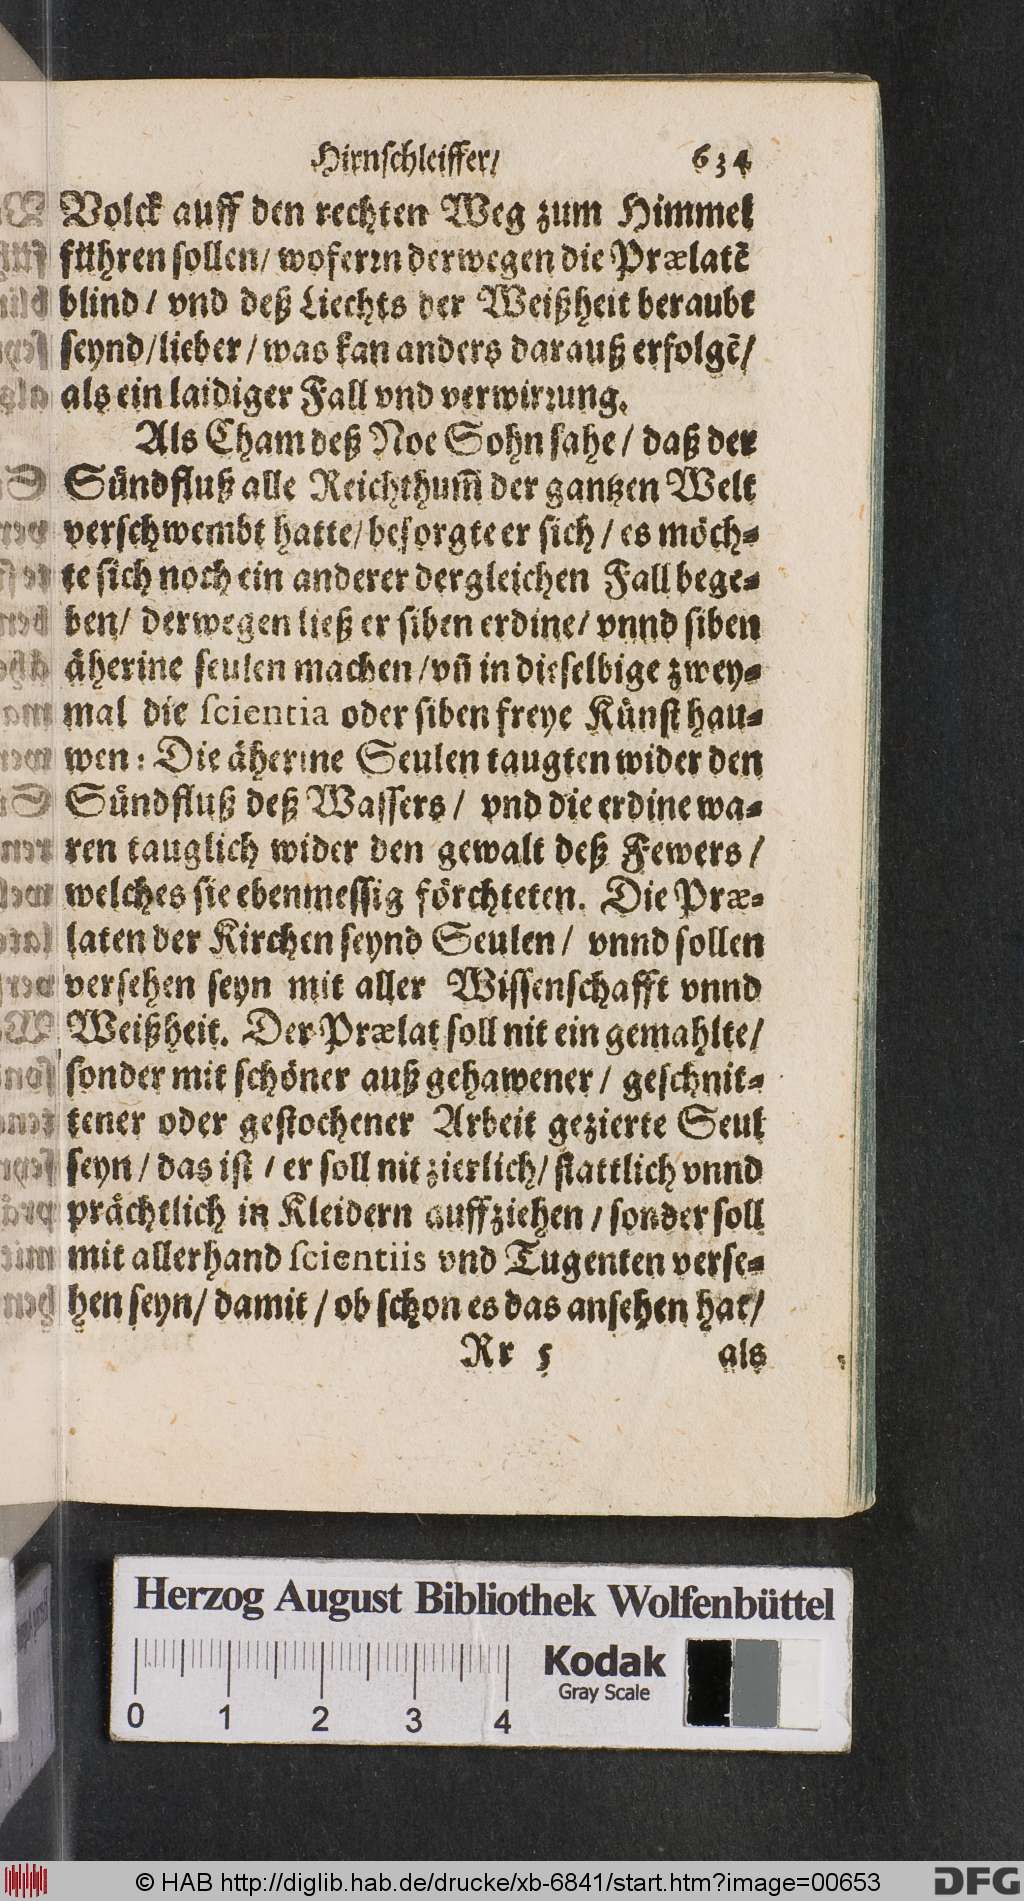 Hirnschleiffer/ 634
Volck auff den rechten Weg zum Himmel
führen sollen/ woferrn derwegen die Prælatẽ
blind/ vnd deß Liechts der Weißheit beraubt
seynd/lieber/was kan anders darauß erfolgẽ/
als ein laidiger Fall vnd verwirrung.
Als Cham deß Noe Sohn sahe/ daß der
Sündfluß alle Reichthum̃ der gantzen Welt
verschwembt hatte/besorgte er sich/ es möch-
te sich noch ein anderer dergleichen Fall bege-
ben/ derwegen ließ er siben erdine/ vnnd siben
äherine seulen machen/vñ in dieselbige zwey-
mal die scientia oder siben freye Künst hau-
wen: Die äherine Seulen taugten wider den
Sündfluß deß Wassers/ vnd die erdine wa-
ren tauglich wider den gewalt deß Fewers/
welches sie ebenmessig förchteten. Die Præ-
laten der Kirchen seynd Seulen/ vnnd sollen
versehen seyn mit aller Wissenschafft vnnd
Weißheit. Der Prælat soll nit ein gemahlte/
sonder mit schöner auß gehawener/ geschnit-
tener oder gestochener Arbeit gezierte Seul
seyn/ das ist/ er soll nit zierlich/ stattlich vnnd
prächtlich in Kleidern auffziehen/ sonder soll
mit allerhand scientiis vnd Tugenten verse-
hen seyn/ damit/ ob schon es das ansehen hat/
Rr 5 als
Herzog August Bibliothek Wolfenbüttel
Kodak
Gray Scale
0 1 2 3 4
© HAB http://diglib.hab.de/drucke/xb-6841/start.htm?image=00653
DFG